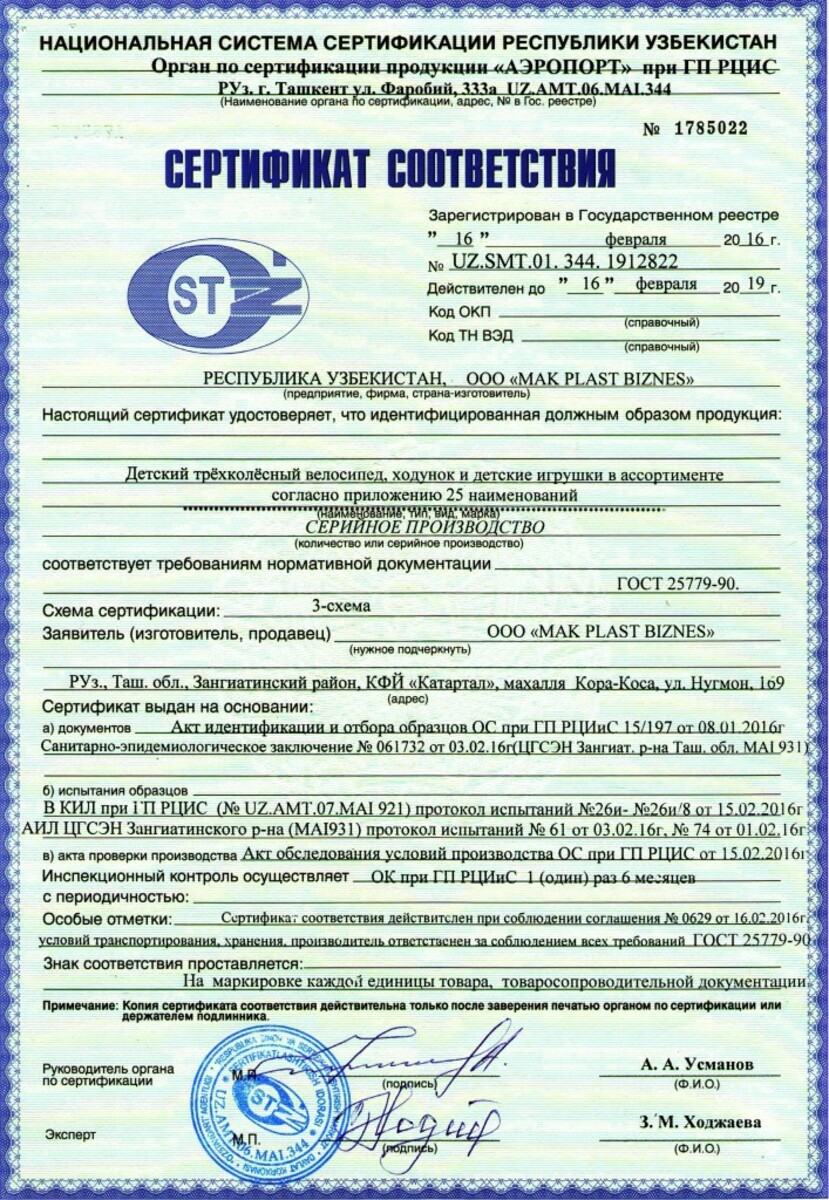 НАЦИОНАЛЬНАЯ СИСТЕМА СЕРТИФИКАЦИИ РЕСПУБЛИКИ УЗБЕКИСТАН
Орган по сертификации продукции «АЭРОПОРТ» при ГП РЦИС
РУз. г. Ташкент ул. Фаробий, 333а UZ.AMT.06.MAI.344
(Наименование органа по сертификации, адрес, № в Гос. реестре)
№ 1785022
СЕРТИФИКАТ СООТВЕТСТВИЯ
Зарегистрирован в Государственном реестре
" 16 " февраля 2016 г.
№ UZ.SMT.01. 344. 1912822
Действителен до " 16 " февраля 2019 г.
Код ОКП
(справочный)
Код ТН ВЭД
(справочный)
ST
РЕСПУБЛИКА УЗБЕКИСТАН, ООО «MAK PLAST BIZNES»
(предприятие, фирма, страна-изготовитель)
Настоящий сертификат удостоверяет, что идентифицированная должным образом продукция:
Детский трёхколёсный велосипед, ходунок и детские игрушки в ассортименте
согласно приложению 25 наименований
(наименование, тип, вид, марка)
СЕРИЙНОЕ ПРОИЗВОДСТВО
(количество или серийное производство)
соответствует требованиям нормативной документации
ГОСТ 25779-90.
Схема сертификации: 3-схема
Заявитель (изготовитель, продавец) ООО «MAK PLAST BIZNES»
(нужное подчеркнуть)
РУз., Таш. обл., Зангиатинский район, КФЙ «Катартал», махалля Кора-Коса, ул. Нугмон, 169
(адрес)
Сертификат выдан на основании:
а) документов Акт идентификации и отбора образцов ОС при ГП РЦИиС 15/197 от 08.01.2016г
Санитарно-эпидемиологическое заключение № 061732 от 03.02.16г(ЦГСЭН Зангиат. р-на Таш. обл. MAI 931)
б) испытания образцов
В КИЛ при ГП РЦИС (№ UZ.AMT.07.MAI 921) протокол испытаний №26и- №26и/8 от 15.02.2016г
АИЛ ЦГСЭН Зангиатинского р-на (MAI931) протокол испытаний № 61 от 03.02.16г, № 74 от 01.02.16г
в) акта проверки производства Акт обследования условий производства ОС при ГП РЦИС от 15.02.2016г
Инспекционный контроль осуществляет ОК при ГП РЦИиС 1 (один) раз 6 месяцев
с периодичностью:
Особые отметки: Сертификат соответствия действителен при соблюдении соглашения № 0629 от 16.02.2016г.
условий транспортирования, хранения, производитель ответственен за соблюдением всех требований ГОСТ 25779-90
Знак соответствия проставляется:
На маркировке каждой единицы товара, товаросопроводительной документации
Примечание: Копия сертификата соответствия действительна только после заверения печатью органом по сертификации или
держателем подлинника.
Руководитель органа
по сертификации
М.П.
(подпись)
А. А. Усманов
(Ф.И.О.)
Эксперт
М.П.
(подпись)
З. М. Ходжаева
(Ф.И.О.)
ST
UZ.AMT.06.MAI.344